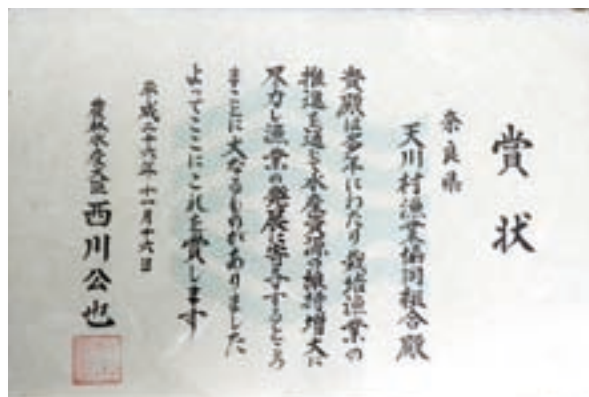 賞状
奈良県
天川村漁業協同組合殿
貴殿は多年にわたり栽培漁業の
推進を通じ水産資源の維持増大に
尽力し漁業の発展に寄与するところ
まことに大なるものがありました
よってここにこれを賞します
平成二十六年十一月十六日
農林水産大臣 西川公也